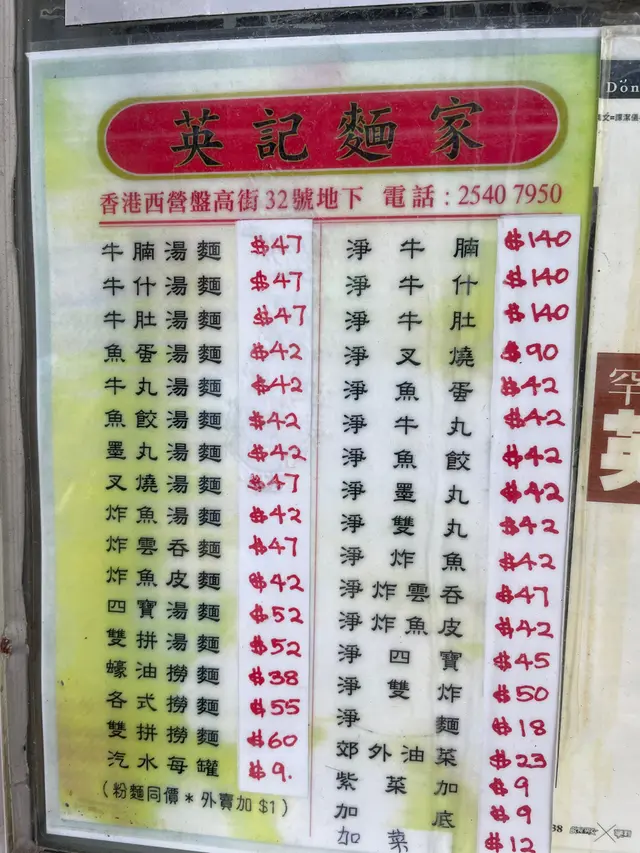 英記麵家
香港西營盤高街32號地下 電話:2540 7950
牛腩湯麵 $47
牛什湯麵 $47
牛肚湯麵 $47
魚蛋湯麵 $42
牛丸湯麵 $42
魚餃湯麵 $42
墨丸湯麵 $42
叉燒湯麵 $47
炸魚湯麵 $42
炸雲吞麵 $47
炸魚皮麵 $42
四寶湯麵 $52
雙拼湯麵 $52
蠔油撈麵 $38
各式撈麵 $55
雙拼撈麵 $60
汽水每罐 $9.
(粉麵同價*外賣加$1)
淨牛腩 $140
淨牛什 $140
淨牛肚 $140
淨叉燒 $90
淨魚蛋 $42
淨牛丸 $42
淨魚餃 $42
淨墨丸 $42
淨雙丸 $42
淨炸魚 $42
淨炸雲吞 $47
淨炸魚皮 $42
淨四寶 $45
淨雙炸 $50
淨麵 $18
郊外油菜 $23
紫菜加 $9
加底 $9
加菜 $12
Dön